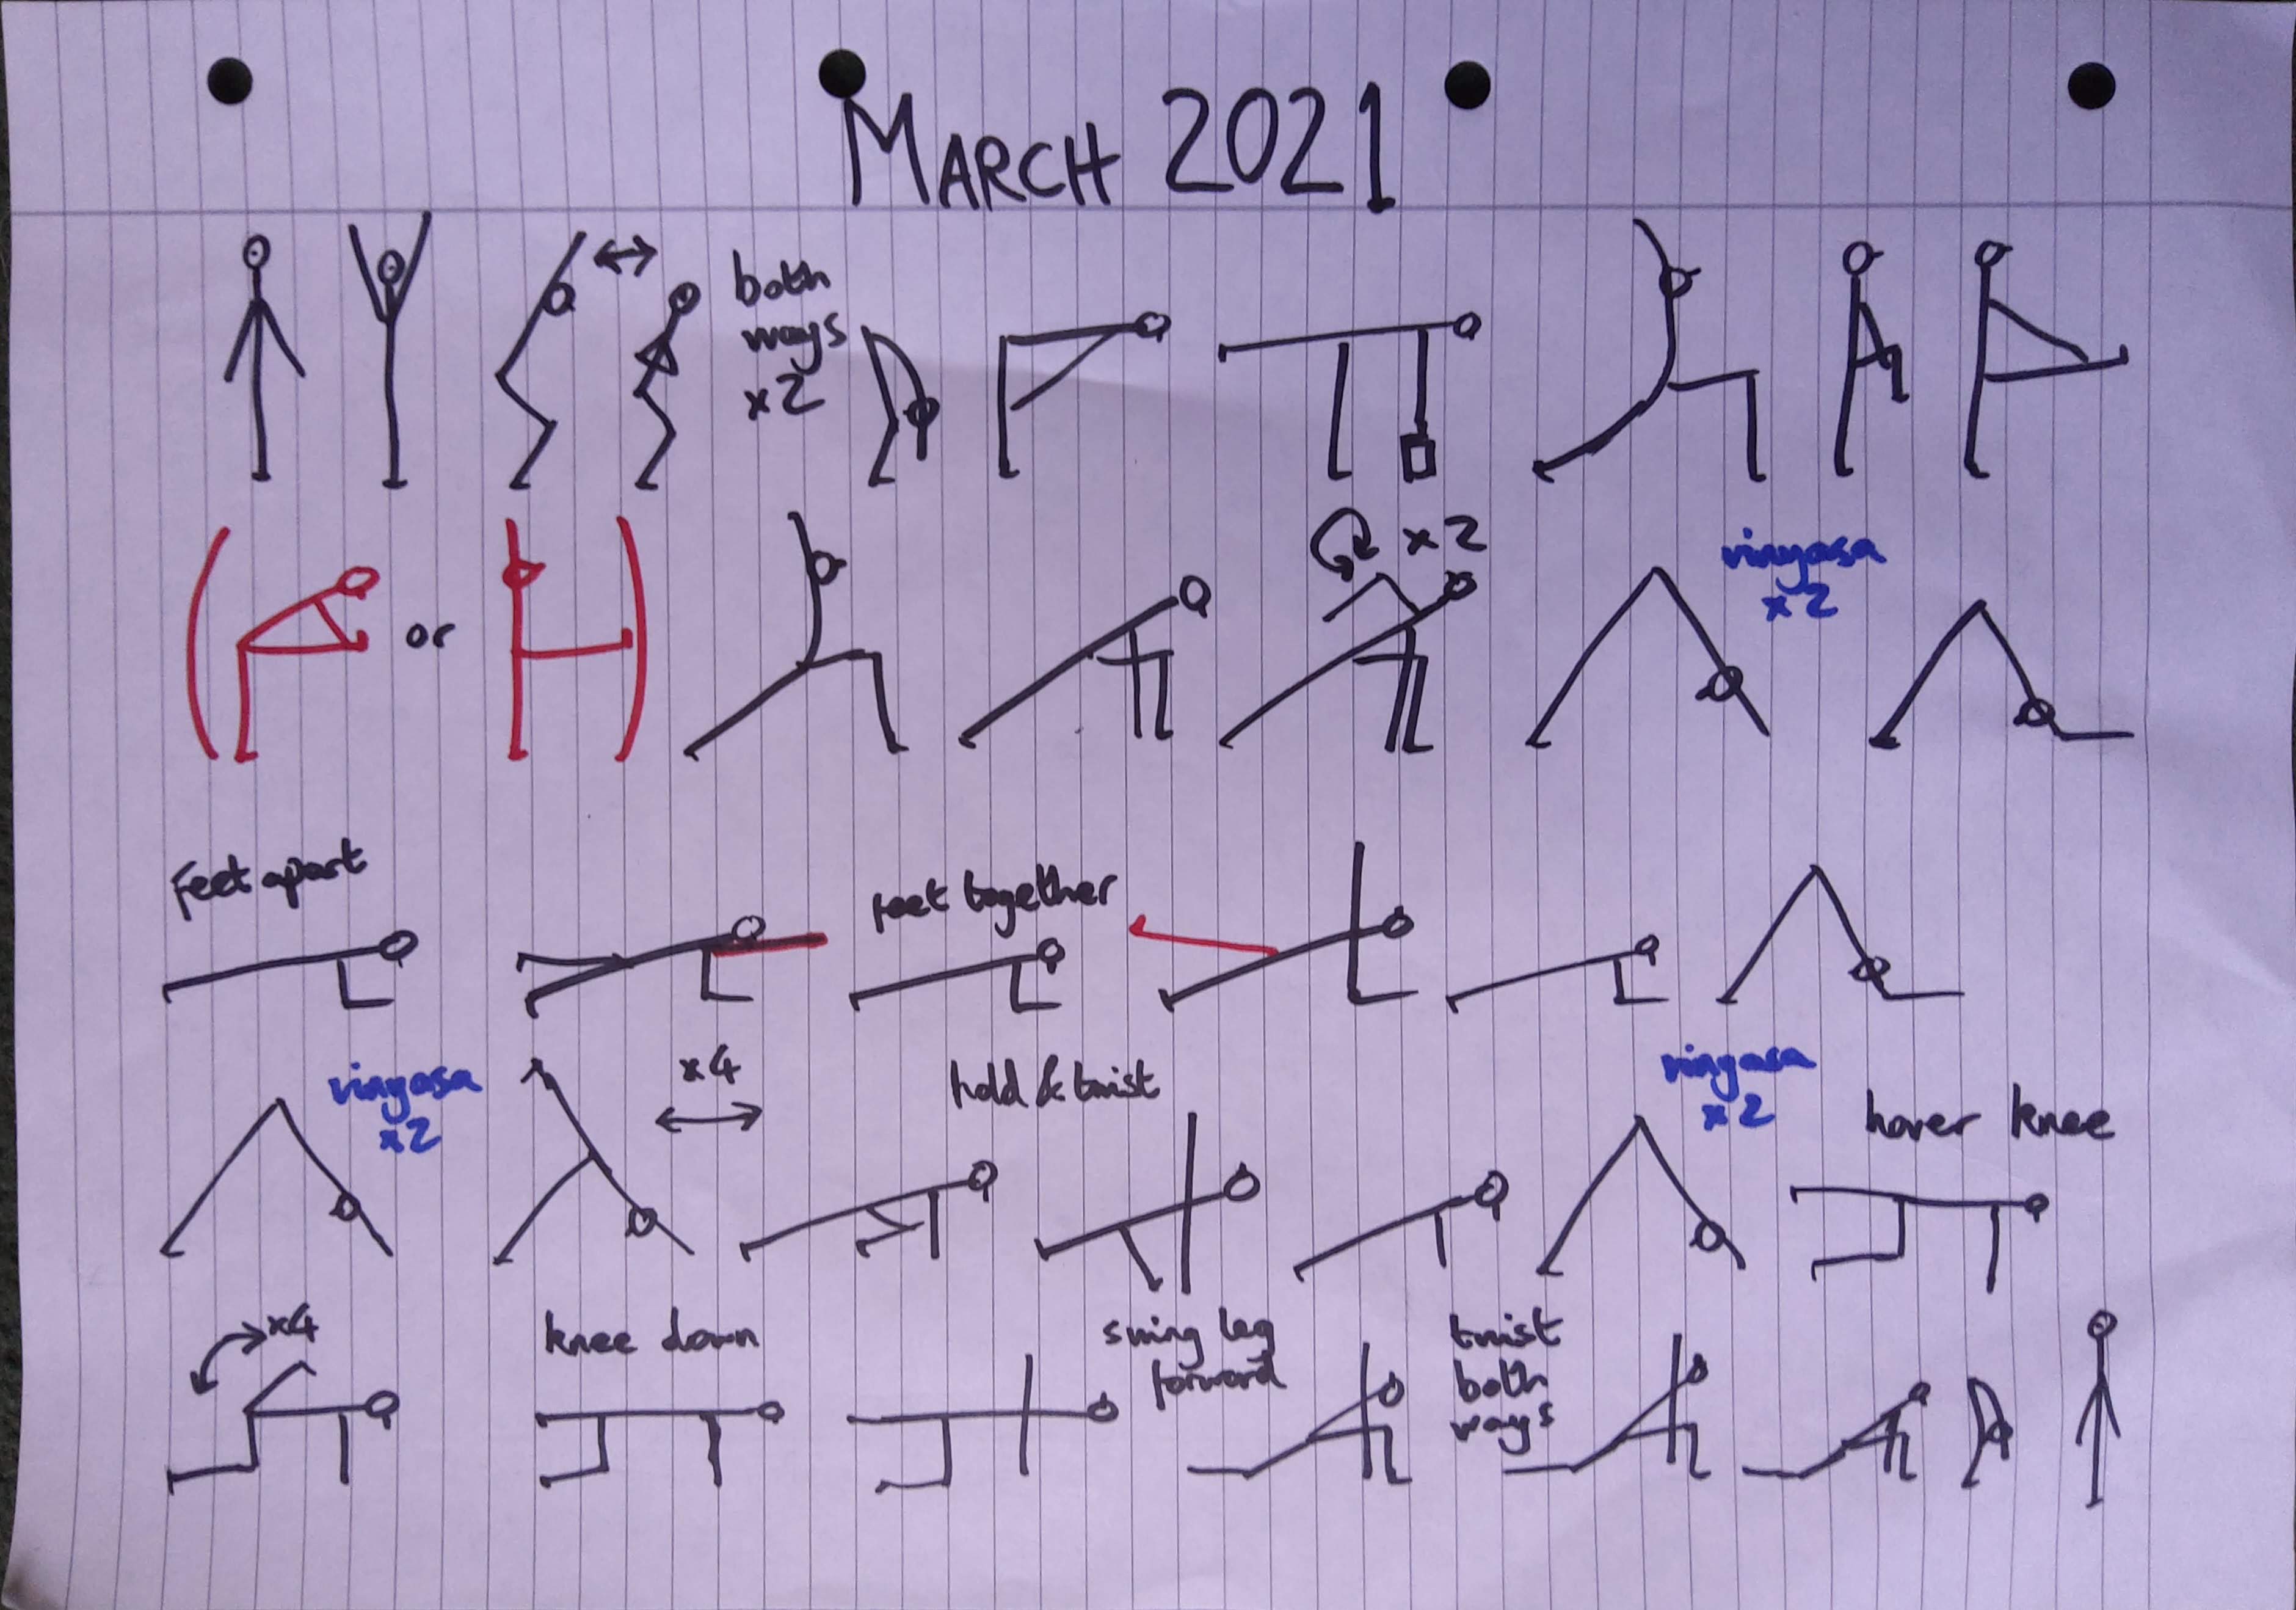 MARCH 2021
both
ways
x2
or
x2
vinyasa
x2
Feet apart
feet together
vinyasa
x2
x4
hold & twist
vinyasa
x2
hover knee
x4
knee down
swing leg
forward
twist
both
ways